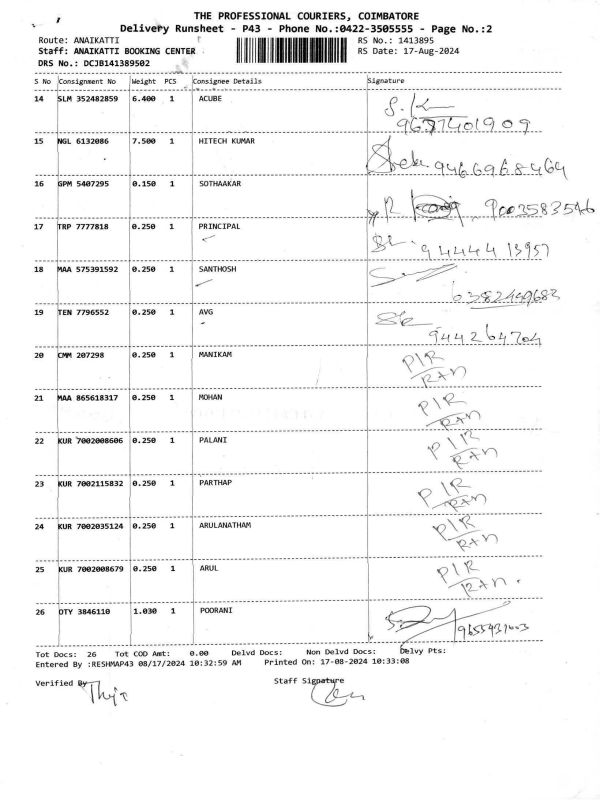 THE PROFESSIONAL COURIERS, COIMBATORE
Delivery Runsheet - P43 - Phone No.:0422-3505555 - Page No.:2
Route: ANAIKATTI RS No.: 1413895
Staff: ANAIKATTI BOOKING CENTER RS Date: 17-Aug-2024
DRS No.: DCJB141389502
S No Consignment No Weight PCS Consignee Details Signature
14 SLM 352482859 6.400 1 ACUBE
15 NGL 6132086 7.500 1 HITECH KUMAR
9466968464
16 GPM 5407295 0.150 1 SOTHAAKAR
9003583546
17 TRP 7777818 0.250 1 PRINCIPAL
94444 13957
18 MAA 575391592 0.250 1 SANTHOSH
19 TEN 7796552 0.250 1 AVG
9442264704
20 CMM 207298 0.250 1 MANIKAM P/R
21 MAA 865618317 0.250 1 MOHAN P/R
22 KUR 7002008606 0.250 1 PALANI P/R
23 KUR 7002115832 0.250 1 PARTHAP P/R
24 KUR 7002035124 0.250 1 ARULANATHAM P/R
25 KUR 7002008679 0.250 1 ARUL P/R
26 OTY 3846110 1.030 1 POORANI
Tot Docs: 26 Tot COD Amt: 0.00 Delvd Docs: Non Delvd Docs: Delvy Pts:
Entered By :RESHMAP43 08/17/2024 10:32:59 AM Printed On: 17-08-2024 10:33:08
Verified By Staff Signature